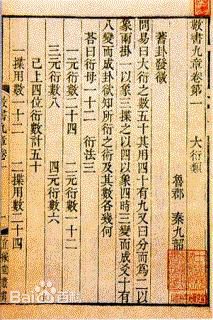 數書九章卷第一
大衍類
魯郡 秦九韶
蓍卦發微
問易曰大衍之數五十其用四十有九又曰分而為二以
象兩掛一以象三揲之以四以象四時三變而成爻十有
八變而成卦欲知所衍之術及其數各幾何
荅曰衍母一十二 衍法三
一元衍數二十四 二元衍數一十二
三元衍數八 四元衍數六
已上四位衍數計五十
一揲用數一十二 二揲用數二十四
數書九章卷一
宜稼堂叢書
Bai百科